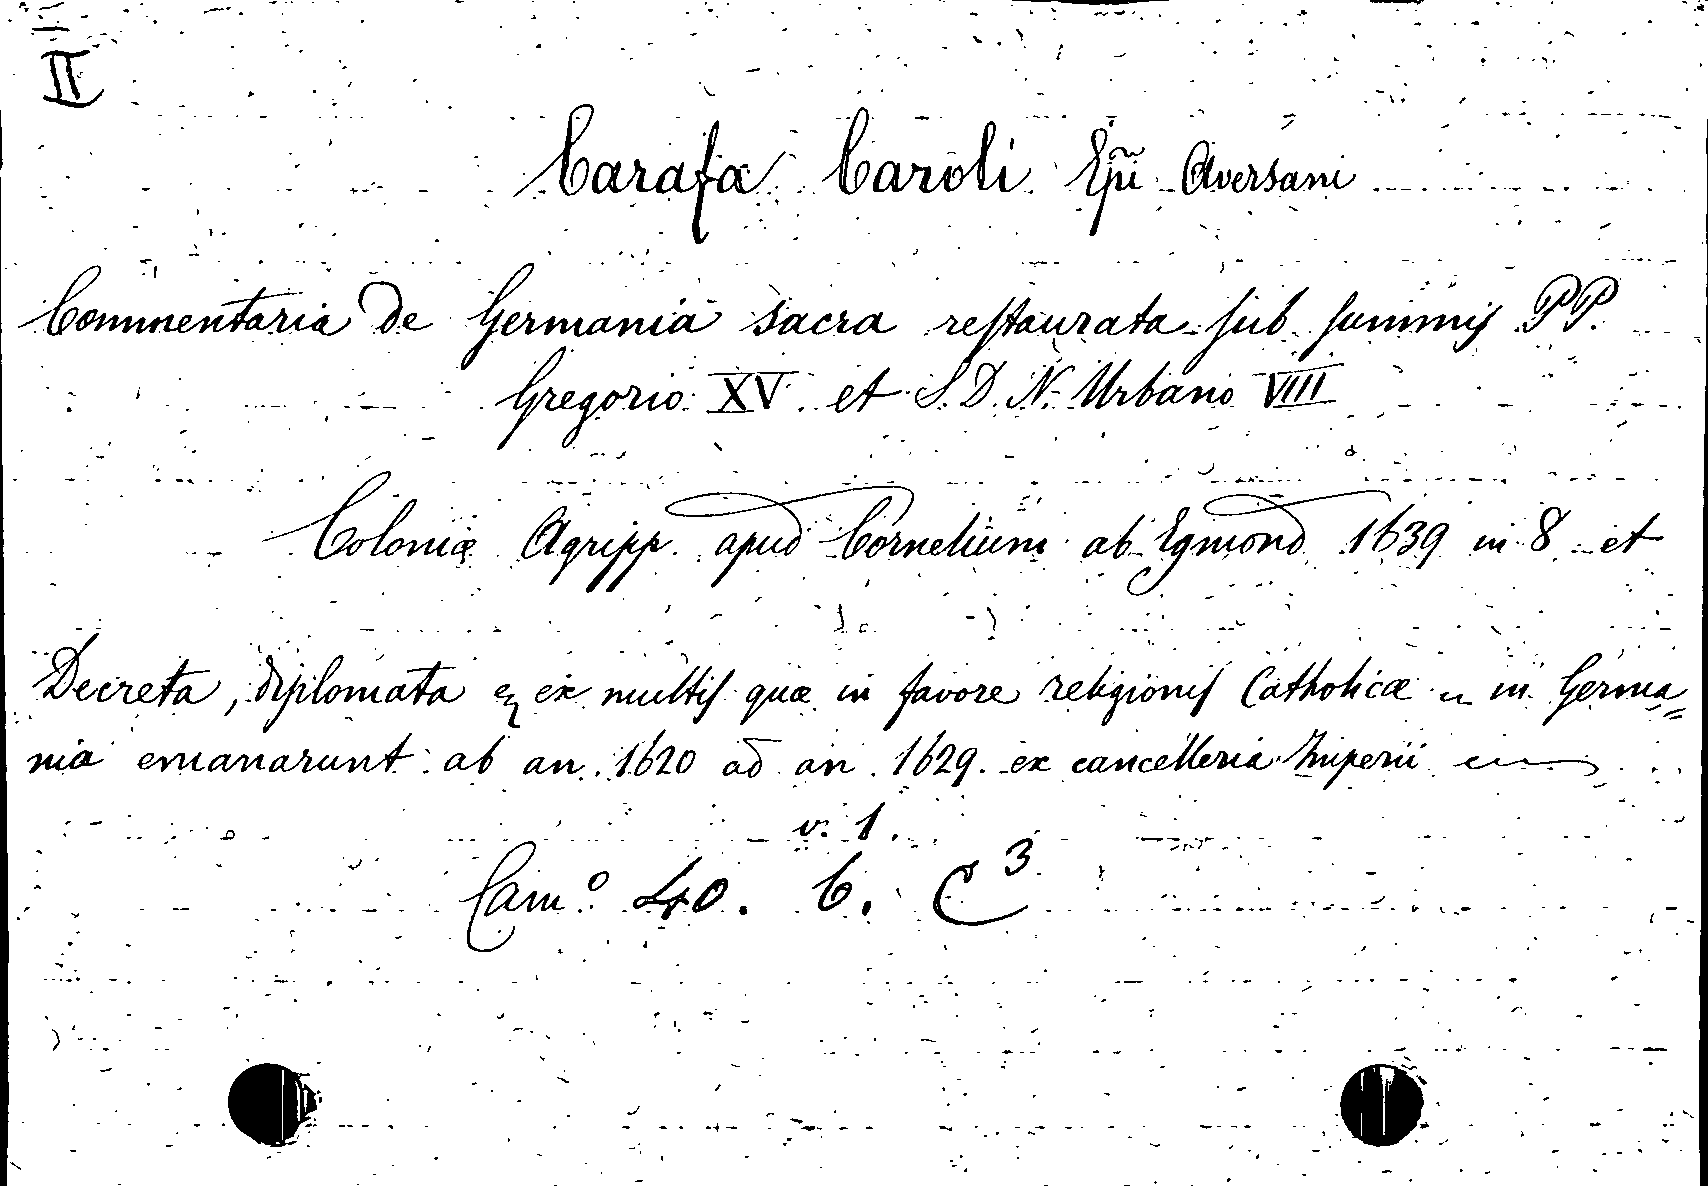 II
Carafa Caroli Epĩ Aversani
Commentaria de Germania sacra restaurata sub summis PP.
Gregorio XV et S. D. N. Urbano VIII
Coloniæ Agripp. apud Cornelium ab Egmond 1639 in 8 et
Decreta, diplomata ex multis quæ in favore religionis Catholicæ in Germa=
nia emanarunt ab an. 1620 ad an. 1629. ex cancelleria Imperii
v. 1.
Cam.º 40. b. C³